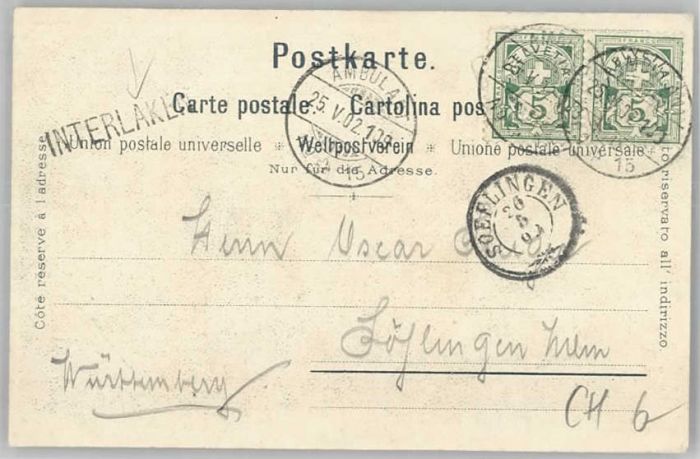 Postkarte.
Carte postale. Cartolina pos
Union postale universelle * Weltpostverein * Unione postale universale
Nur für die Adresse.
Côté réservé à l'adresse
riservato all' indirizzo
INTERLAKE
AMBULA
25.V.02.
15
HELVETIA
5
5
AMBULANT
15
SOEFLINGEN
26
5
Herrn Oscar
Söflingen Ulm
Württemberg
CH 6